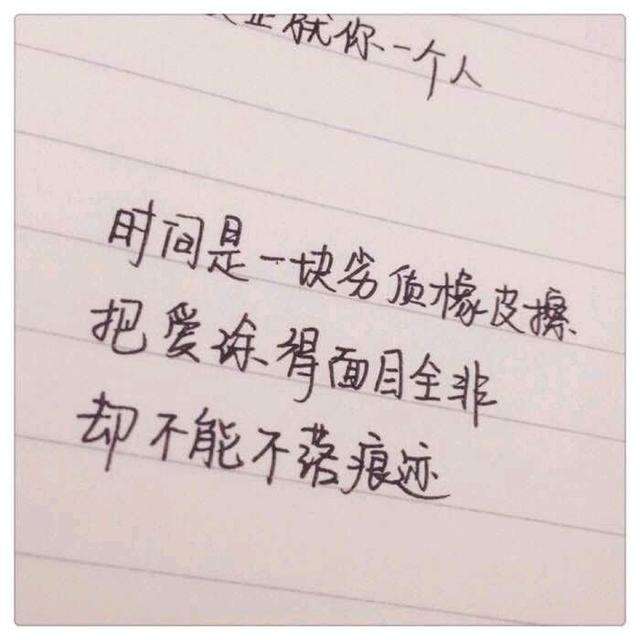 就你一个人
时间是一块劣质橡皮擦
把爱涂得面目全非
却不能不落痕迹